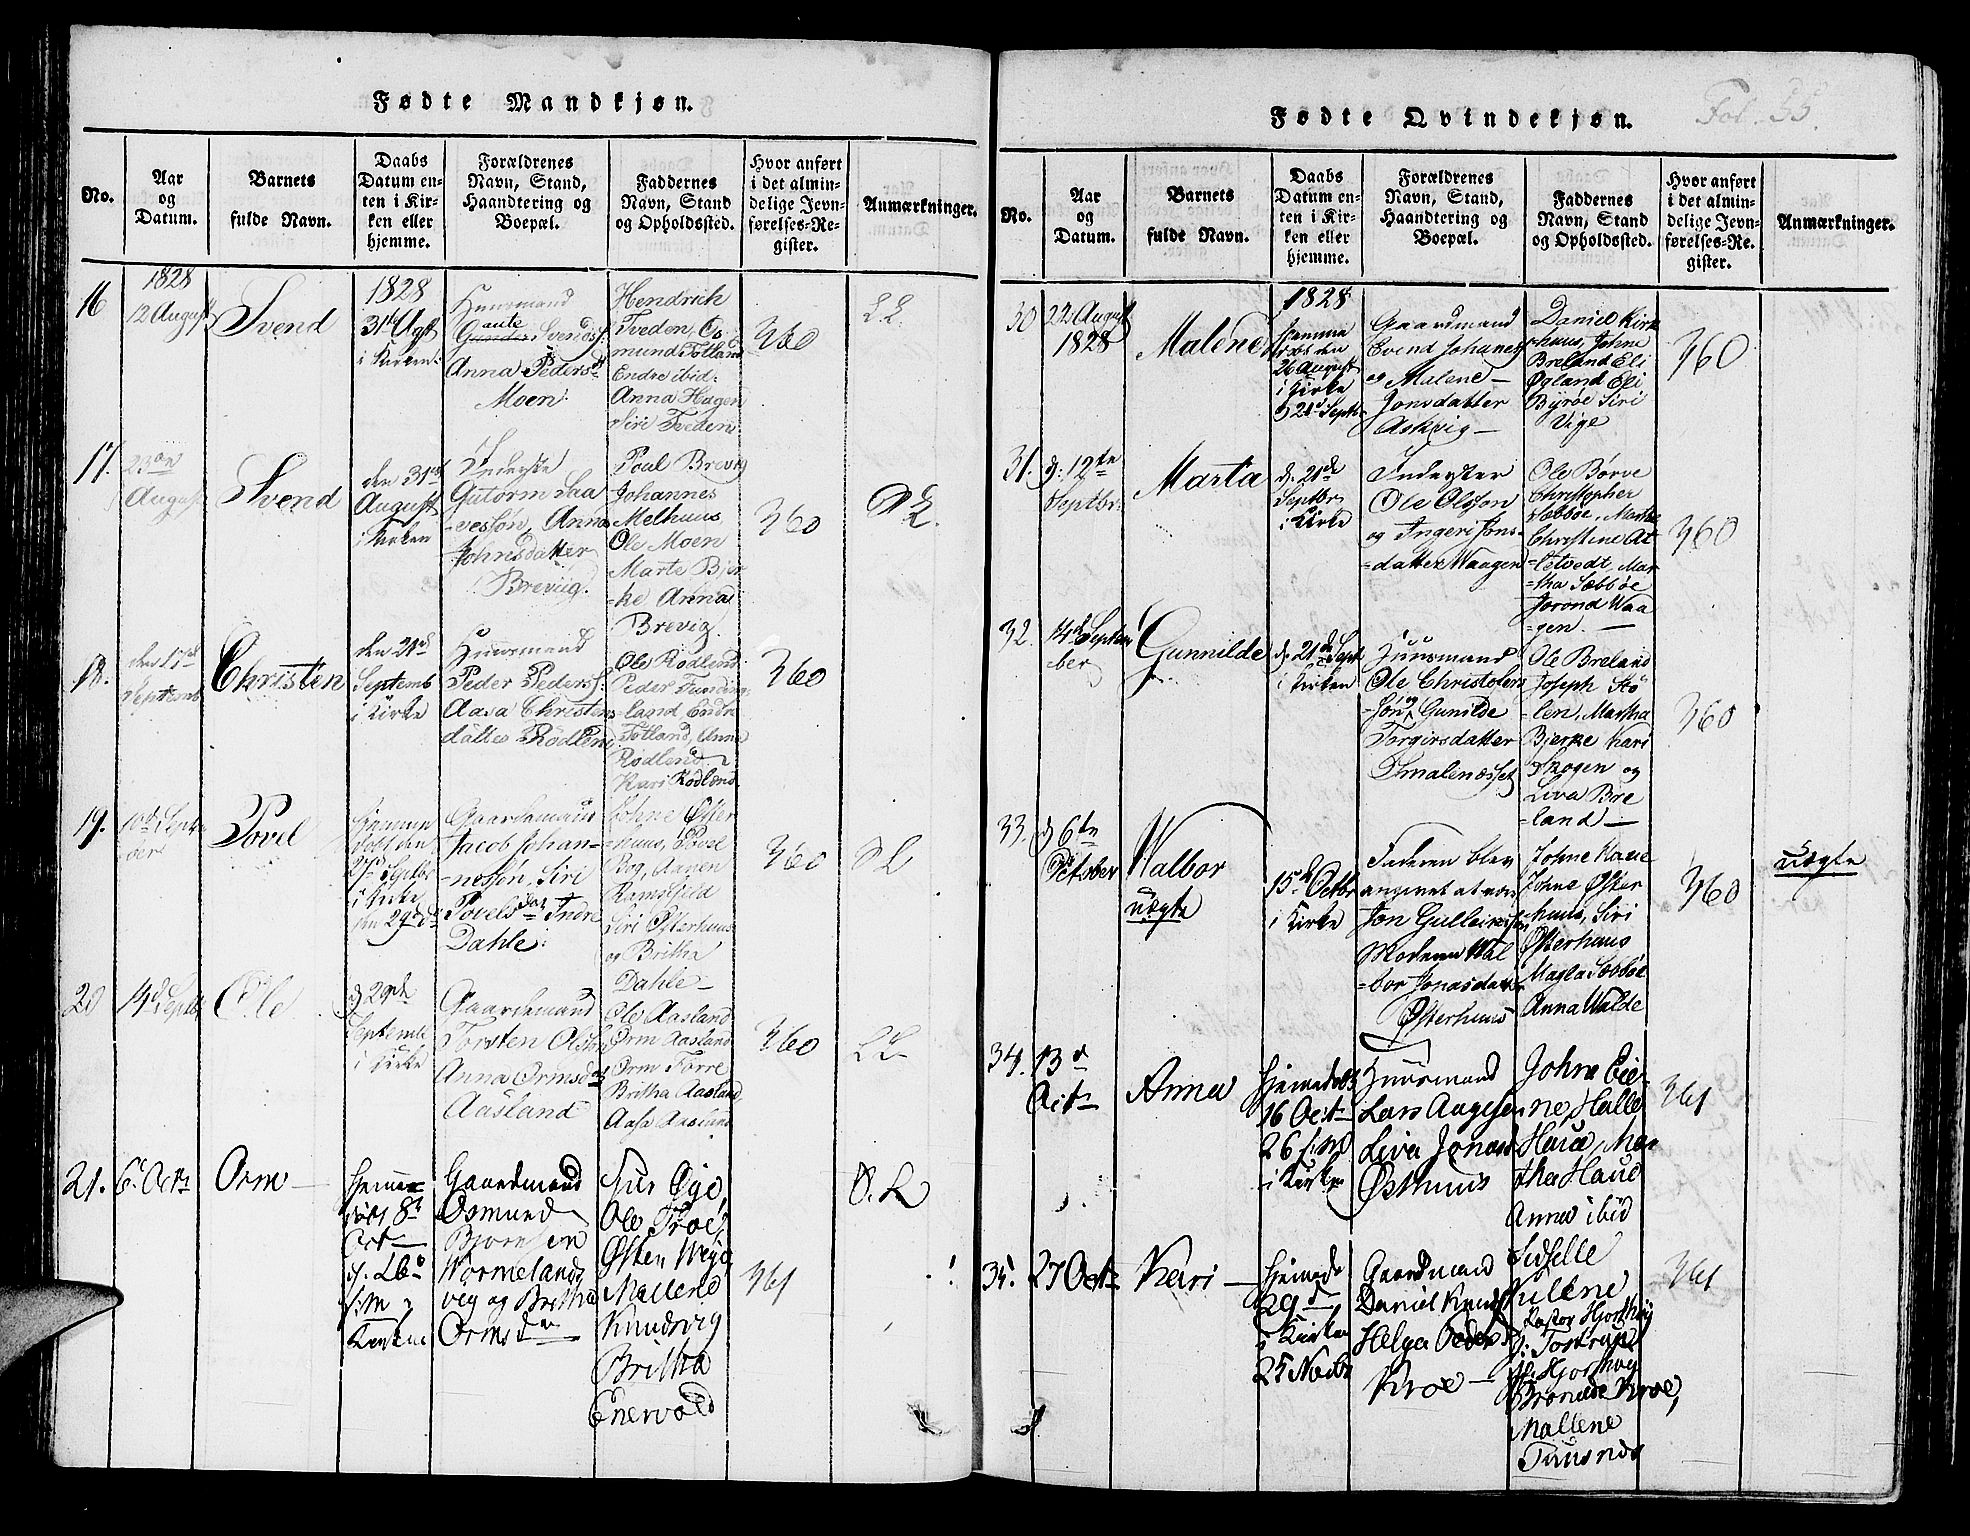 Fødte Mandkjøn.
No.
Aar
og
Datum.
Barnets
fulde Navn.
Daabs
Datum en-
ten i Kir-
ken eller
hjemme.
Forældrenes
Navn, Stand,
Haandtering og
Boepæl.
Faddernes
Navn, Stand
og Opholdssted.
Hvor anført
i det almin-
delige Jevn-
førelses-Re-
gister.
Anmærkninger.
16
1828
12 August
Svend
1828
31te Agst
i Kirken
Huusmand
Gaute
Gunder Svends:
Anna Pedersd
Moen
Hendrich
Tveden, Os
mund Totland
Endre ibid:
Anna Hagen
Siri Tveden
360
17.
23de
August
Svend
den 31te
August
i Kirken
Inderste
Gutorm Saa
vessøn, Anna
Johnsdatter
Brevig.
Poul Brevig
Johannes
Melhuus
Ole Moen
Marte Bjer
-ke Anna
Brevig.
360
18.
den 17de
Septemb
Christen
den 21d
Septemb
i Kirke
Huusmand
Peder Peders:
Aasa Christens
datter Rødlend
Ole Rødlend
Peder
land, Endre
Totland, Anna
Rødlend
Kari Rødlend
360
19.
10d Septem
ber
Povel
Hjemme
døbt den
27d Septbr
i Kirke
den 29de
Gaardemand
Jacob Johan-
nessøn, Siri
Povelsdat Indre
Dahle:
Johne Øster
-huus, Povel
Bog,
Ramsfield
Siri Østerhuus
og Britha
Dahle-
360
20
14d Septb
Ole
d 29de
Septemb
i Kirke
Gaardemand
Torsten Olsøn
Anna Ormsd
Aasland
Ole Aasland
Orm Aasland
Orm Førre
Britha Aasland
Aasa Aasland
360
21.
6. Octr
Orm
Hjemme
døbt 8
Oct
d. 26
Kirken
Gaardmand
Osmund
Bjørnsen
Wormelands
veg og Britha
Ormsd
Sjur Øye
Ole Kroe
Østen Weje
Mallene
Knudsvig
Britha
Enervold
361
Fødte Qvindekjøn.
Fol. 55.
No.
Aar
og
Datum.
Barnets
fulde Navn.
Daabs
Datum en-
ten i Kir-
ken eller
hjemme.
Forældrenes
Navn, Stand,
Haandtering og
Boepæl.
Faddernes
Navn, Stand
og Opholdssted.
Hvor anført
i det almin-
delige Jevn-
førelses-Re-
gister.
Anmærkninger.
30
22 August
1828
Malene
1828
hjemme
døbt den
26 August
i Kirke
d 21d Septb.
Gaardmand
Svend Johanes
og Malene-
Jonsdatter
Askvig-
Daniel Kirk
huus, Johne
Breland Eli
Øgland Eli
Byrøe Siri
Vige
360
31.
d. 12te
Septbr.
Marta
d. 21de
Septbr
i Kirke
Inderster
Ole Olssøn
og Ingeri Jons-
-datter Waagen
Ole Børve
Christopher
Sæbbøe, Marthe
Christine At
-letvedt, Mar-
-tha Sæbbøe
Jorond Waa
-gen.-
360
32.
14d Septem
ber
Gunnilde
d. 21de Sept
i Kirken
Huusmand
Ole Christofers
-søn, Gunilde
Torgirsdatter
Smalenæsset
Ole Breland
Joseph Stø
-len, Martha
Bjerke Kari
Skogen og
Liva Bre
-land-
360
33.
d 6te
October
Walbor
uægte
15d Octbr
i Kirke
Faderen blev
angivet at være
Jon Gulleiksen
Moderen Wal
-bor Jonasdatter
Østerhuus
Johne Haue
Johne Øster
-huus, Siri
Østerhuus
Magla Sæbbøe
Anna Walde
360
uægte
34.
13d
Octr
Anna
hjemedøbt
16 Octr
26
i Kirke
Huusmand
Lars Aagesen
Liva Jonasd
Østhuus
Johne Eie-
ne, Halle
Haue, Mar
tha Haue
Anna ibid
361
35.
27 Octr
Kari-
hjemede
29d
i Kirken
25 Novbr
Gaardmand
Daniel Knuds
Helga Peders
Kroe-
Sidselle
Pastor Hjorthøy
J: Tostrup
Hjorthøy
Kroe,
Mallene
Tuusnes
361